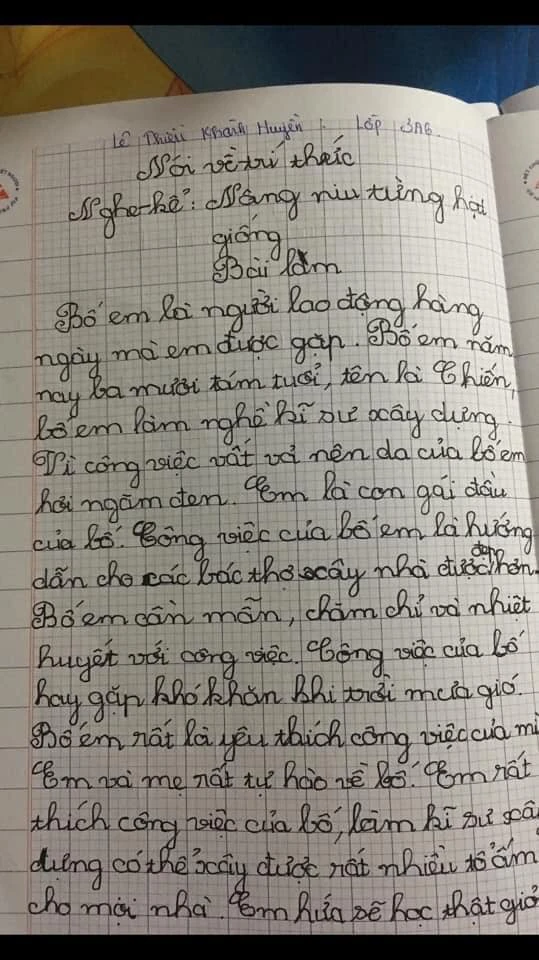 Lê Thiều Khánh Huyền. Lớp 3A6.
Nói về trí thức
Nghe-kể: Nâng niu từng hạt
giống
Bài làm
Bố em là người lao động hàng
ngày mà em được gặp. Bố em năm
nay ba mươi tám tuổi, tên là Chiến,
bố em làm nghề kĩ sư xây dựng.
Vì công việc vất vả nên da của bố em
hơi ngăm đen. Em là con gái đầu
của bố. Công việc của bố em là hướng
dẫn cho các bác thợ xây nhà được đẹp hơn.
Bố em cần mẫn, chăm chỉ và nhiệt
huyết với công việc. Công việc của bố
hay gặp khó khăn khi trời mưa gió.
Bố em rất là yêu thích công việc của mì
Em và mẹ rất tự hào về bố. Em rất
thích công việc của bố, làm kĩ sư xâ
dựng có thể xây được rất nhiều tổ ấm
cho mọi nhà. Em hứa sẽ học thật giỏ